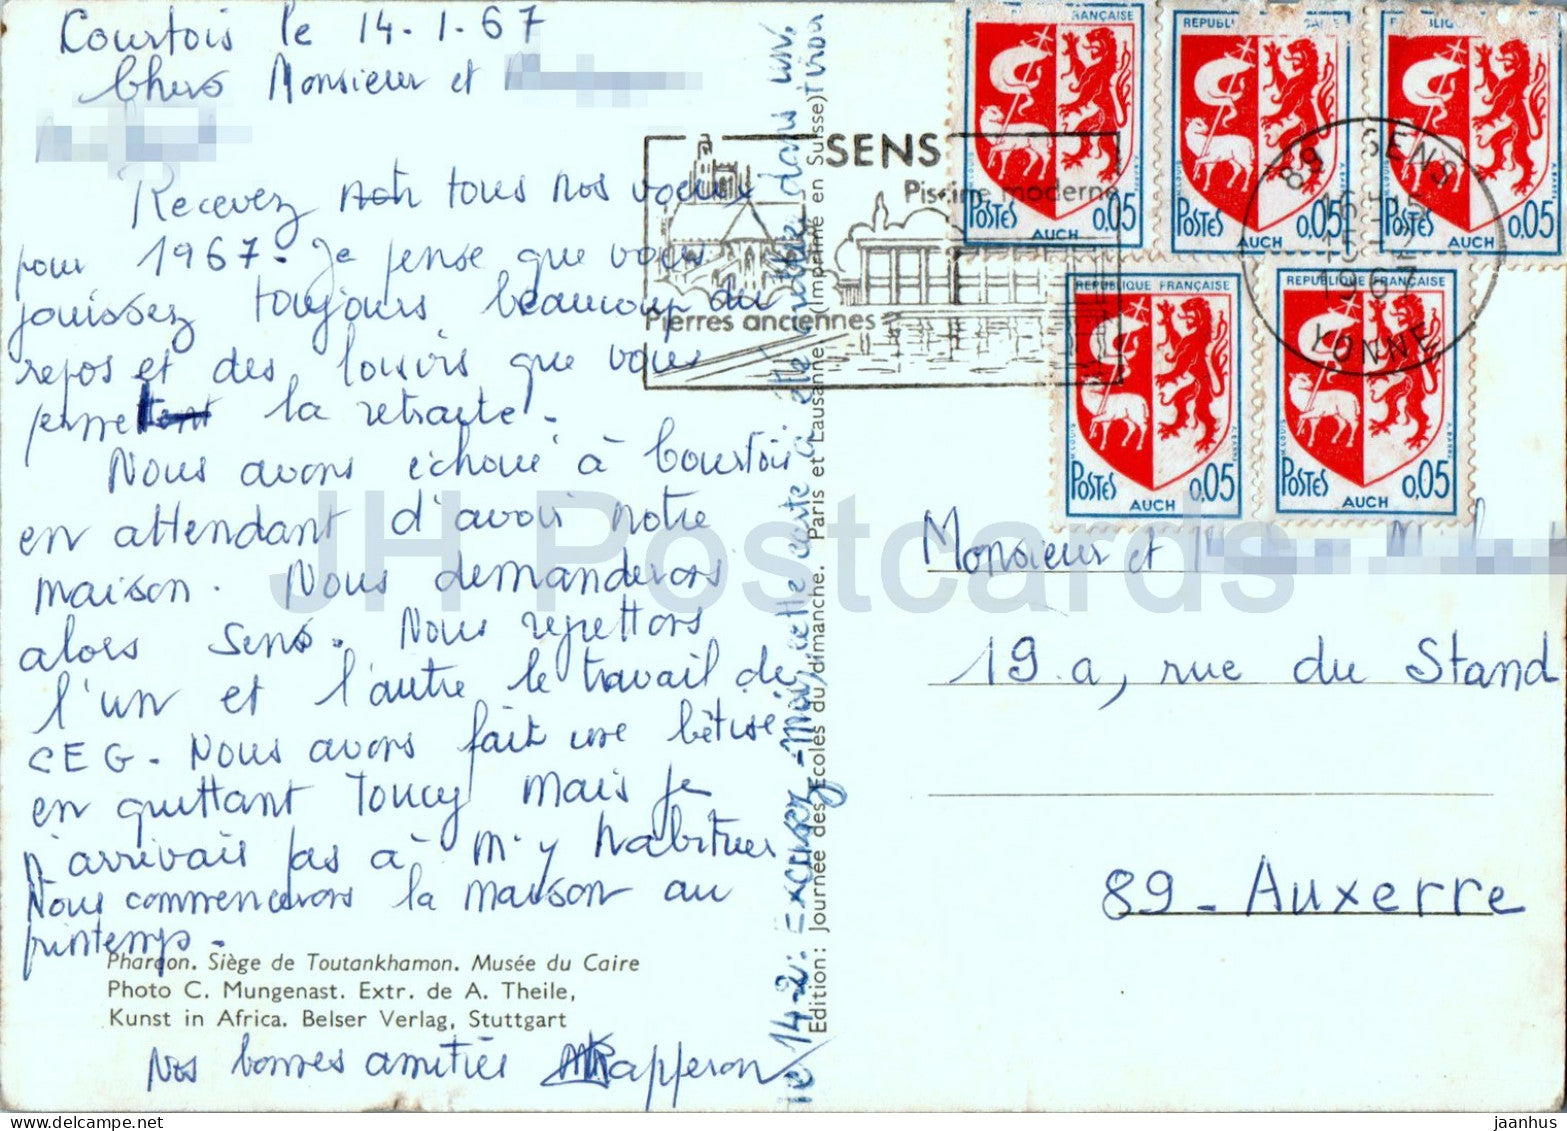 Courtois le 14-1-67
Chers Monsieur et
Recevez tous nos voeux
pour 1967. Je pense que vous
jouissez toujours beaucoup du
repos et des loisirs que vous
permet la retraite.
Nous avons échoué à Courtois
en attendant d'avoir notre
maison. Nous demanderons
alors Sens. Nous regrettons
l'un et l'autre le travail de
CEG. Nous avons fait une bêtise
en quittant Toucy mais je
n'arrivais pas à m'y habituer
Nous commencerons la maison au
printemps.
Pharaon. Siège de Toutankhamon. Musée du Caire
Photo C. Mungenast. Extr. de A. Theile,
Kunst in Africa. Belser Verlag, Stuttgart
Nos bonnes amitiés
le 14-2: Excusez-moi, cette carte a été oubliée dans un
tiroir
Edition: Journée des Ecoles du dimanche. Paris et Lausanne (Imprimé en Suisse)
SENS
Piscine moderne
Pierres anciennes
REPUBLIQUE FRANÇAISE
POSTES AUCH 0,05
POSTES AUCH 0,05
POSTES AUCH 0,05
REPUBLIQUE FRANÇAISE
POSTES AUCH 0,05
REPUBLIQUE FRANÇAISE
POSTES AUCH 0,05
89 SENS
16H15
15-2
1967
YONNE
Monsieur et
19.a, rue du Stand
89 - Auxerre
JH Postcards
jaanhus
©delcampe.net